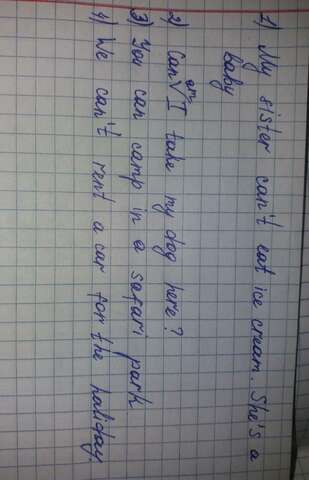 1) My sister can't eat ice cream. She's a
baby
2) Can I take my dog here?
3) You can camp in a safari park
4) We can't rent a car for the haliday.